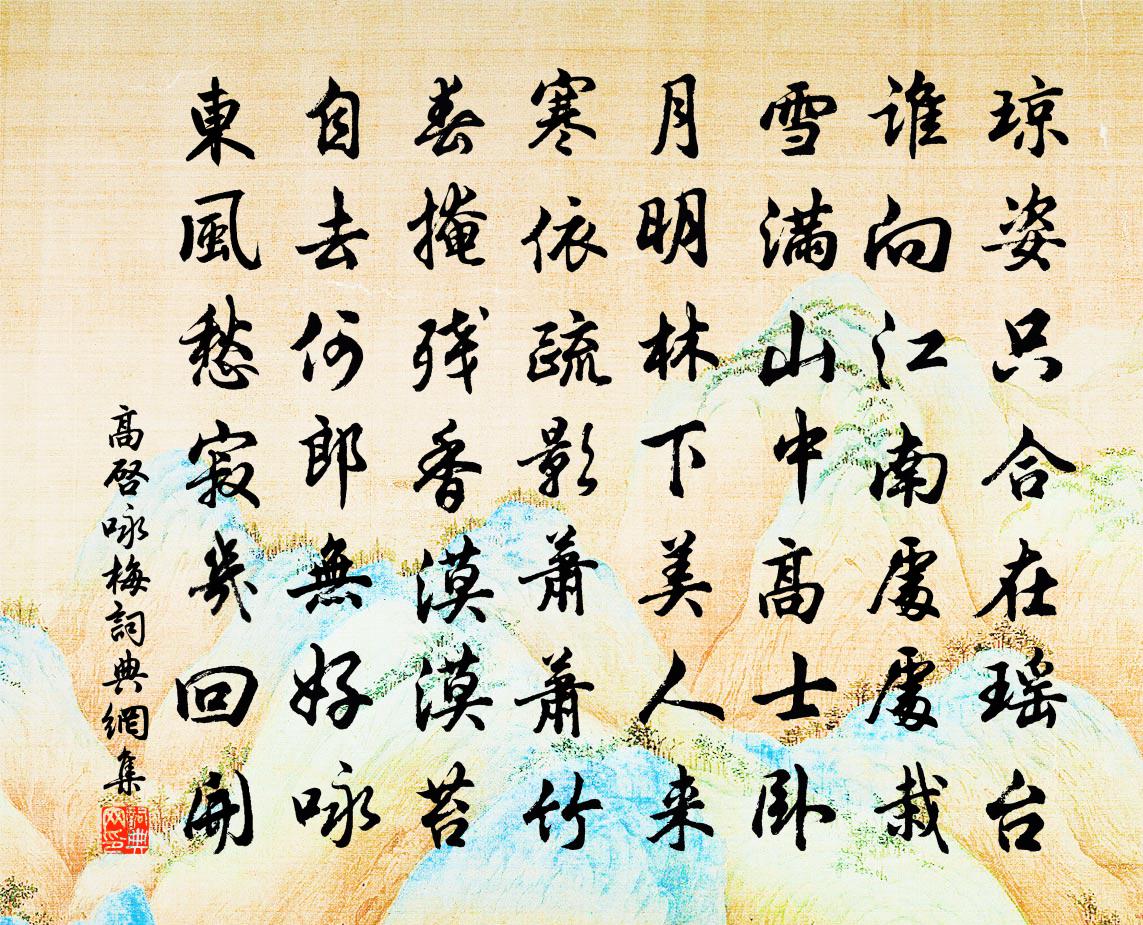 琼姿只合在瑶台
谁向江南處處栽
雪满山中高士卧
月明林下美人来
寒依疏影萧萧竹
春掩残香漠漠苔
自去何郎無好咏
東風愁寂幾回開
高啓咏梅詞典網集
詞典網印